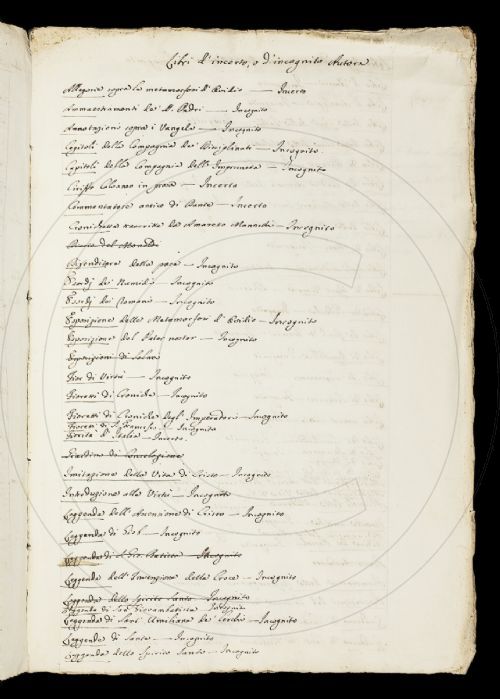 Libri d'incerto, o d'incognito Autore
Allegorie sopra le metamorfosi d'Ovidio — Incerto
Ammaestramenti de' S. Padri — Incognito
Annotazioni sopra i Vangeli — Incognito
Capitoli della Compagnia de' Disciplinati — Incognito
Capitoli della Compagnia dell'Impruneta — Incognito
Ciriffo Calvaneo in prosa — Incerto
Commentatore antico di Dante — Incerto
Cronichetta scritta da Amaretto Mannelli — Incognito
Difenditore della pace — Incognito
Esposizione delle Metamorfosi d'Ovidio — Incognito
Esposizione del Pater noster — Incognito
Esposizioni di Salmi
Fior di Virtù — Incognito
Fioretti di Croniche — Incognito
Fioretti di Croniche degl'Imperadori — Incognito
Fioretti di S. Francesco — Incognito
Fiorita d'Italia — Incerto
Giardino di Consolazione
Imitazione della Vita di Cristo — Incognito
Introduzione alle Virtù — Incognito
Leggenda dell'Ascensione di Cristo — Incognito
Leggenda di Giob — Incognito
Leggenda di S. Gio. Batista — Incognito
Leggenda dell'Invenzione della Croce — Incognito
Leggenda dello Spirito Santo — Incognito
Leggenda di San Giovambatista — Incognito
Leggenda di Sant'Umiliana de' Cerchi — Incognito
Leggenda di Santo — Incognito
Leggenda dello Spirito Santo — Incognito